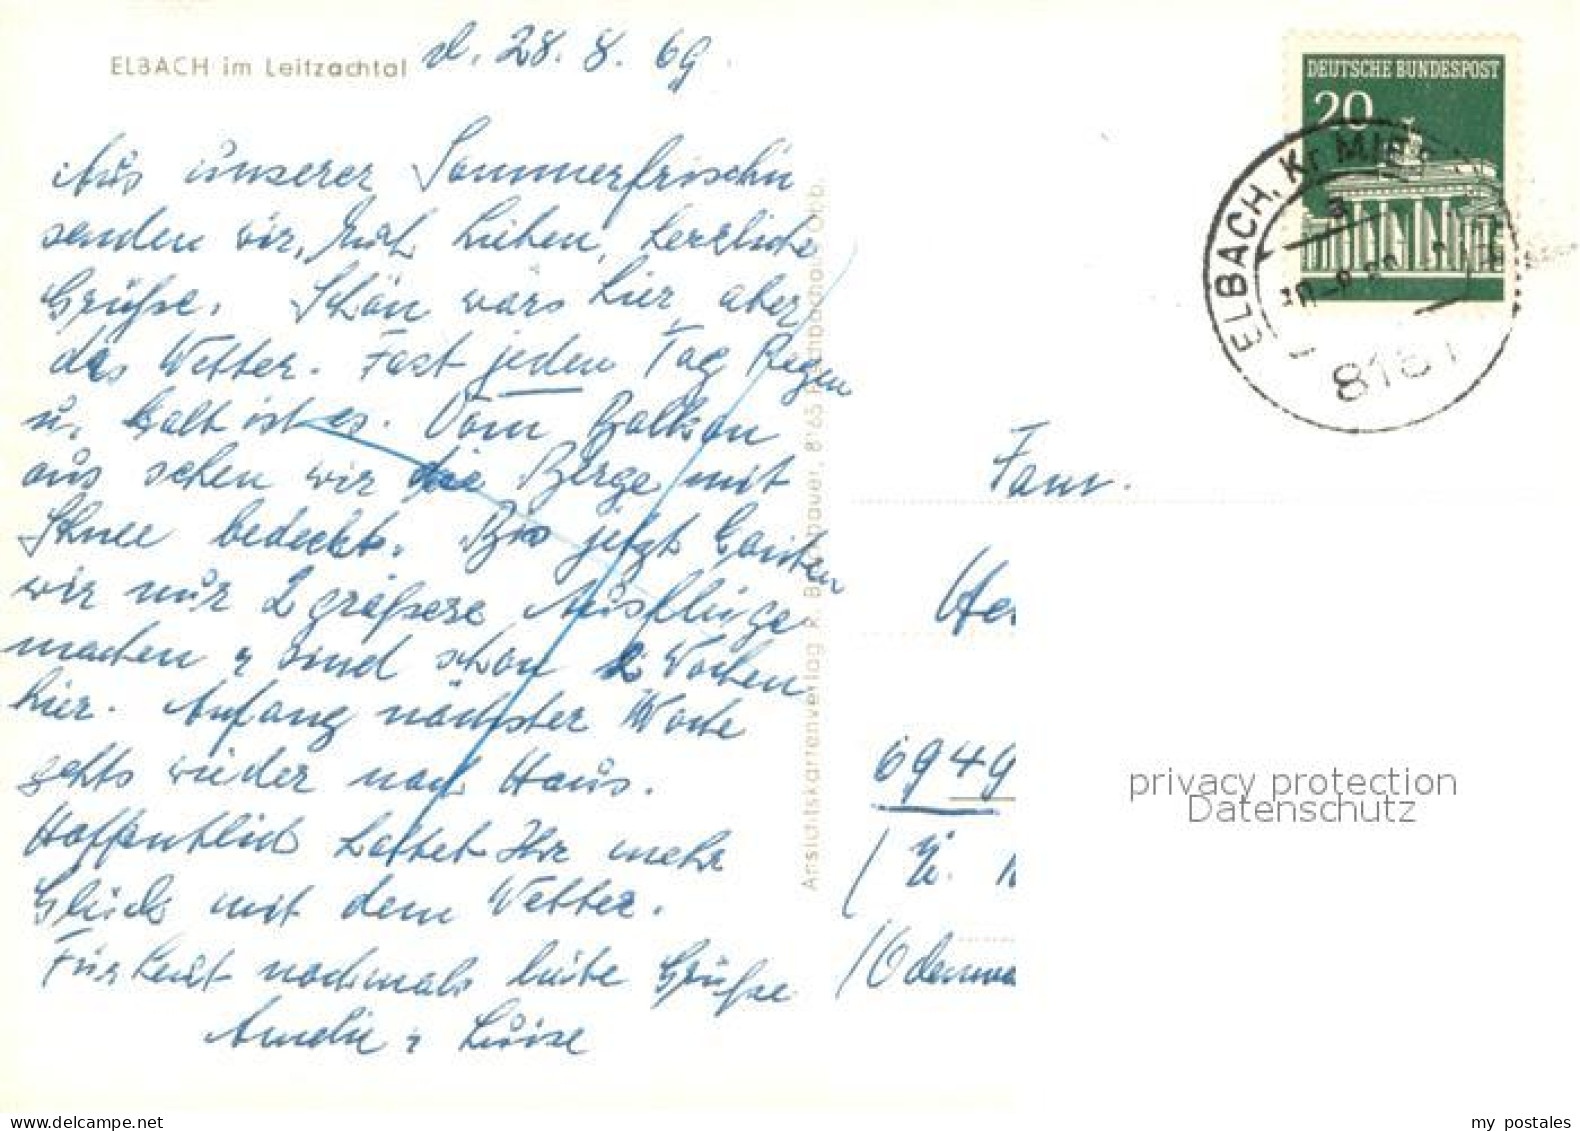 ELBACH im Leitzachtal
d. 28. 8. 69.
Aus unserer Sommerfrische
senden wir, Euch Lieben, herzliche
Grüße. Schön wärs hier, aber
das Wetter. Fast jeden Tag Regen
u. kalt ist es. Vom Balkon
aus sehen wir die Berge mit
Schnee bedeckt. Bis jetzt konnten
wir nur 2 größere Ausflüge
machen u sind schon 2 Wochen
hier. Anfang nächster Woche
gehts wieder nach Haus.
Hoffentlich hattet Ihr mehr
Glück mit dem Wetter.
Für heut nochmals liebe Grüße
Amelie u Luise
Ansichtskartenverlag K.
8165
Obb.
DEUTSCHE BUNDESPOST
20
ELBACH, Kr MIES
a
Fam.
6949
privacy protection
Datenschutz
my postales